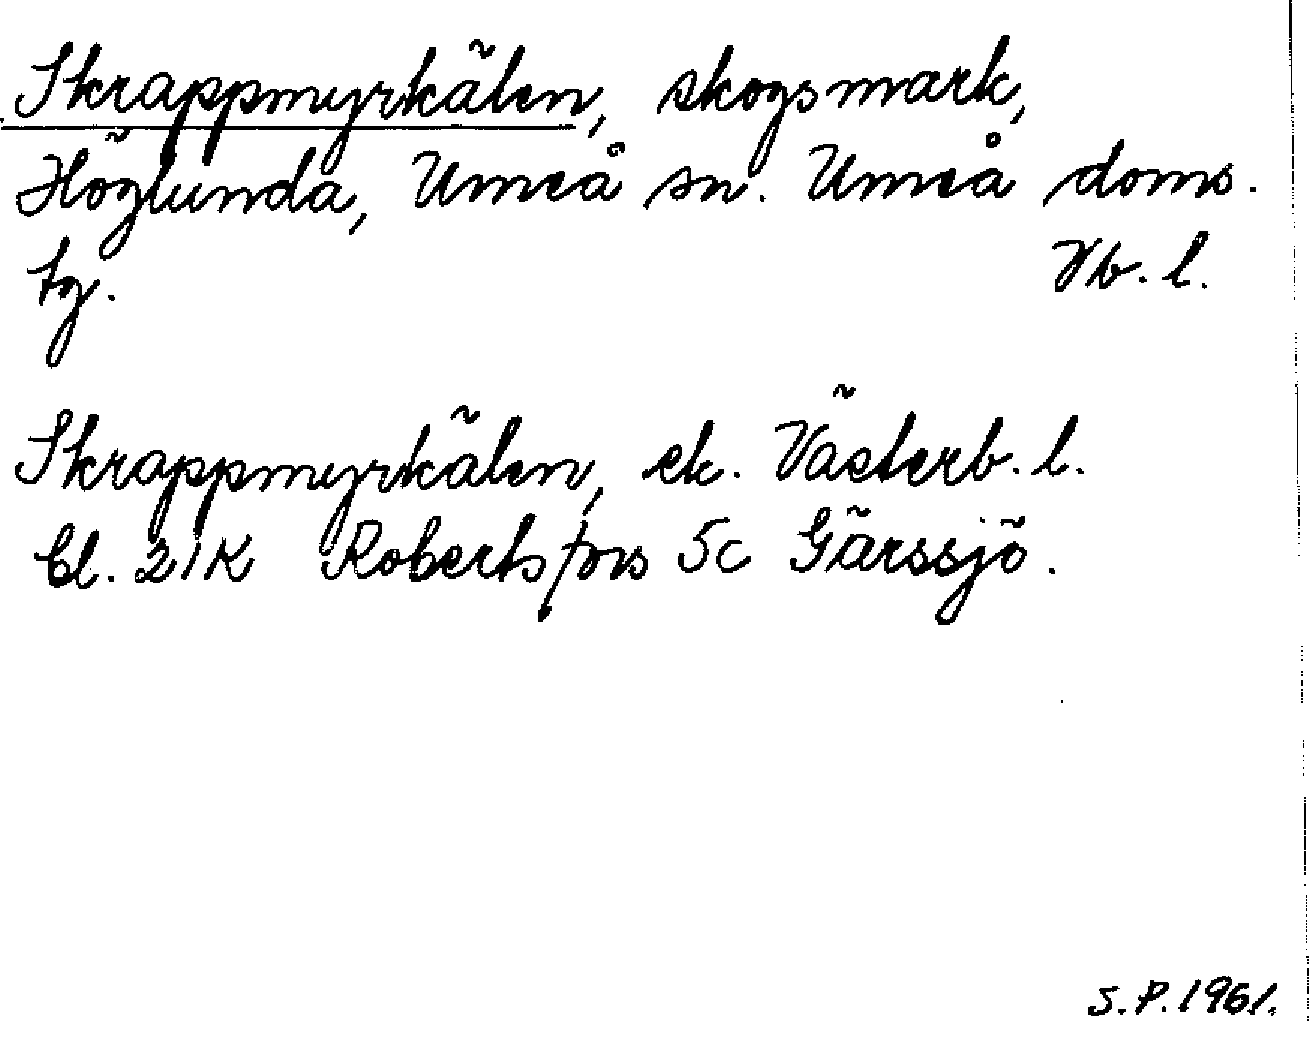 Skrappmyrkälen, skogsmark,
Höglunda, Umeå sn. Umeå doms.
tg. Vb. l.
Skrappmyrkälen, ek. Västerb. l.
bl. 21K Robertsfors 5c Gärssjö.
S.P. 1961.